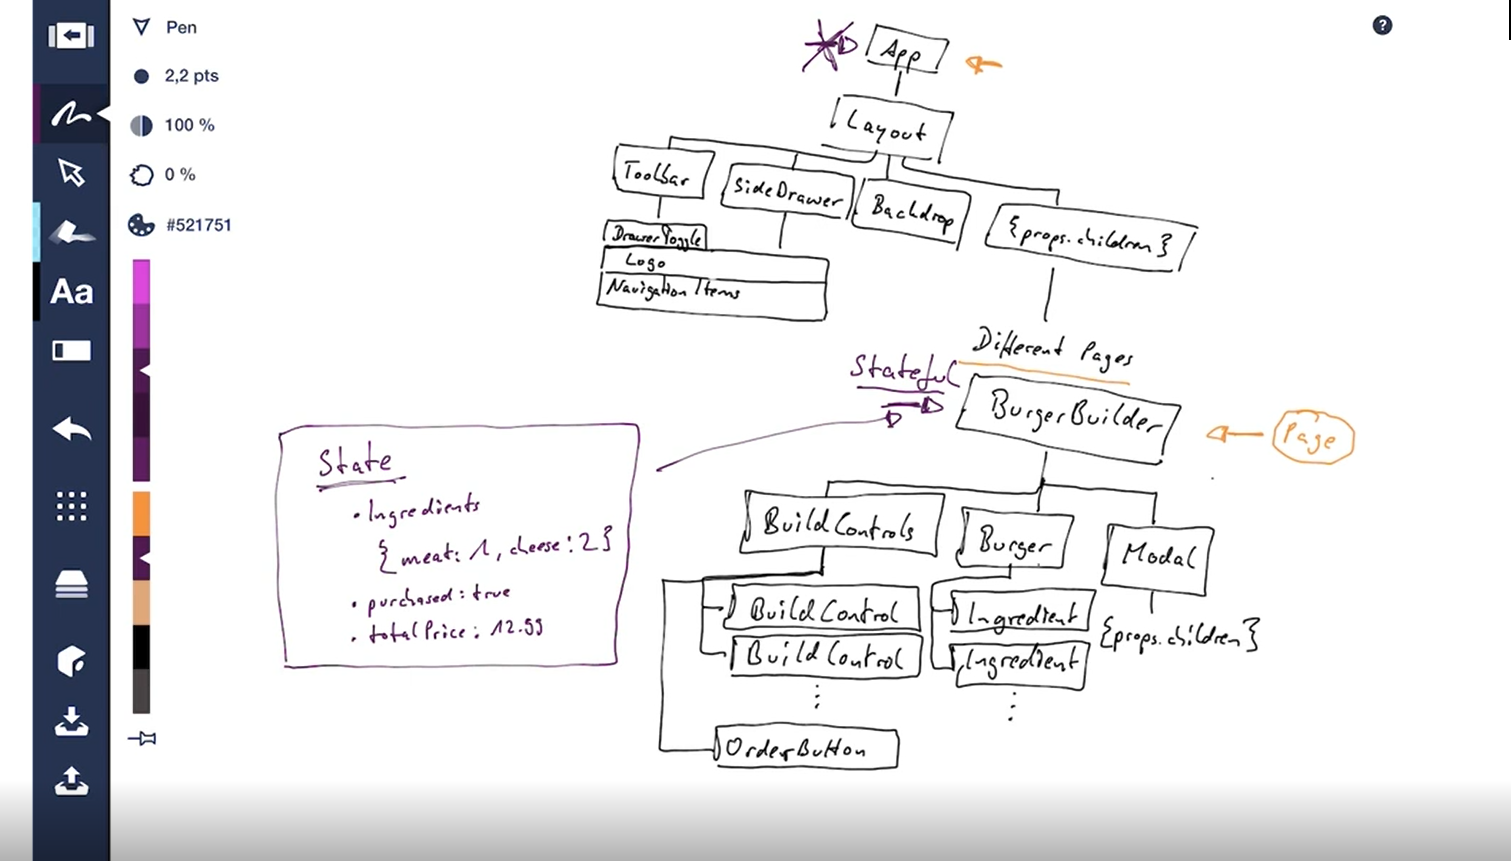 Pen
2,2 pts
100 %
0 %
#521751
Aa
?
App
Layout
Toolbar
SideDrawer
Backdrop
{props.children}
DrawerToggle
Logo
Navigation Items
Different Pages
Stateful
BurgerBuilder
Page
State
• Ingredients
{meat: 1, cheese: 2}
• purchased: true
• totalPrice: 12.99
BuildControls
Burger
Modal
BuildControl
Ingredient
{props.children}
BuildControl
Ingredient
OrderButton